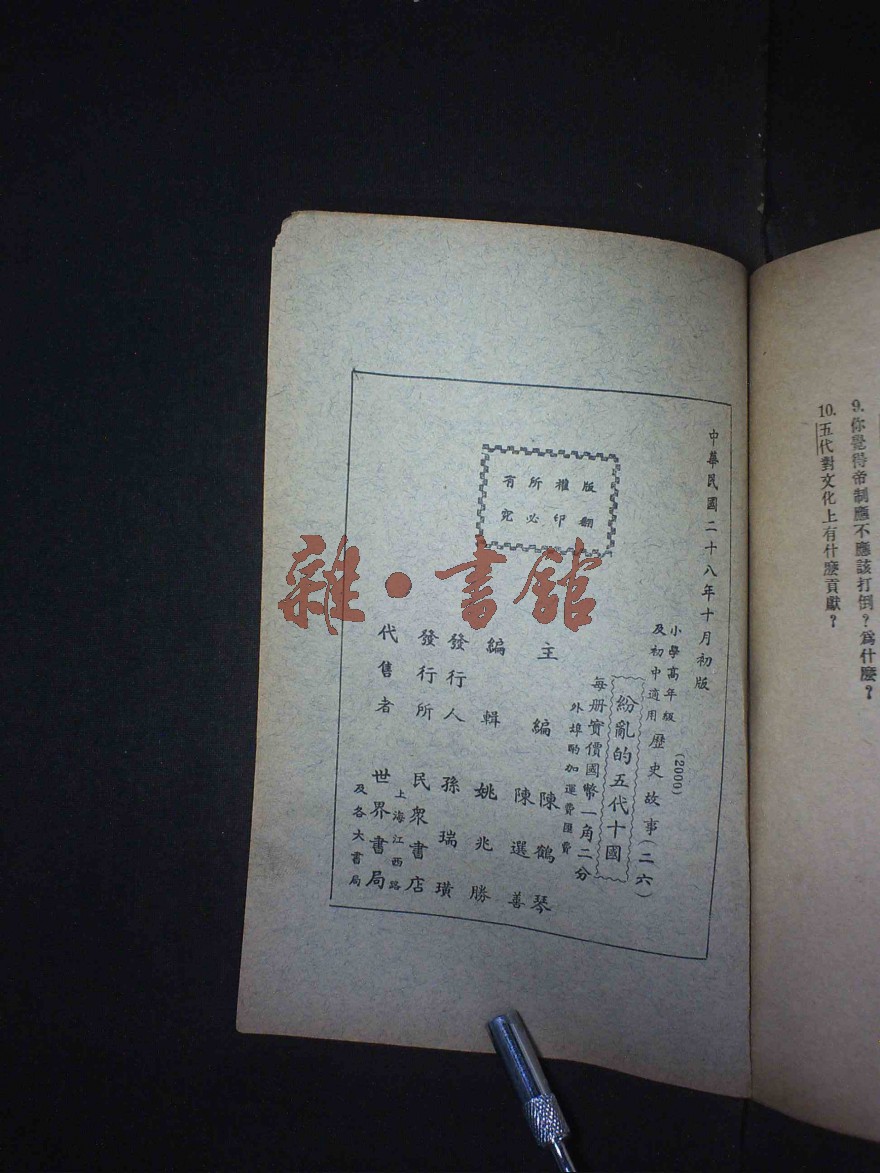 9. 你覺得帝制應不應該打倒？爲什麼？
10. 五代對文化上有什麼貢獻？
中華民國二十八年十月初版
(2000)
小學高年級
及初中適用
歷史故事(二六)
紛亂的五代十國
每册實價國幣一角二分
外埠酌加運費匯費
主編 陳鶴琴
陳選善
編輯 姚兆勝
發行人 孫瑞璜
發行所 民衆書店
上海江西路
代售者 世界書局
及各大書局
版權所有
翻印必究
雜·書館